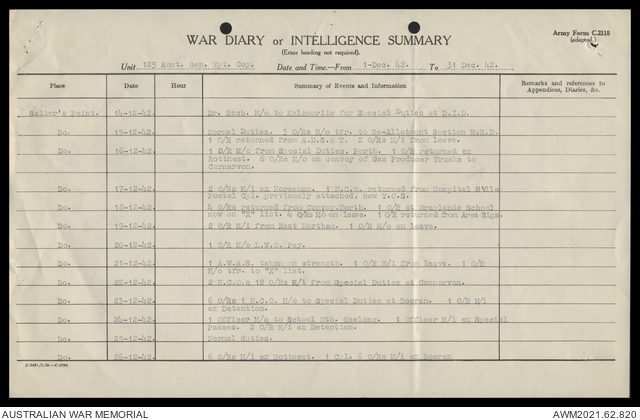 Army Form C.2118
(adapted.)
WAR DIARY or INTELLIGENCE SUMMARY
(Erase heading not required).
Unit 125 Aust. Gen. Tpt. Coy. Date and Time.—From 1-Dec. 42. To 31 Dec. 42.
Place Date Hour Summary of Events and Information Remarks and references to
Appendices, Diaries, &c.
Salter's Point. 14-12-42. Dr. Mech. M/o to Kalgoorlie for Special Duties at D.I.D.
Do. 15-12-42. Normal Duties. 3 O/Rs M/o tfr. to Re-Allotment Section R.R.D.
1 O/R returned from A.D.S.& T. 2 O/Rs M/i from leave.
Do. 16-12-42. 1 O/R M/o from Special Duties, Perth. 1 O/R returned ex
Rottnest. 6 O/Rs M/o on convoy of Gas Producer Trucks to
Carnarvon.
Do. 17-12-42. 2 O/Rs M/i ex Norseman. 1 N.C.O. returned from Hospital M'Ville
Postal Cpl. previously attached, now T.O.S.
Do. 18-12-42. 4 O/Rs returned from Convoy, North. 1 O/R at Graylands School
now on "X" list. 4 O/Rs M/o on leave. 1 O/R returned from Area Sigs.
Do. 19-12-42. 2 O/R M/i from East Northam. 1 O/R M/o on leave.
Do. 20-12-42. 1 O/R M/o L.W.O. Pay.
Do. 21-12-42. 1 A.W.A.S. taken on strength. 1 O/R M/i from leave. 1 O/R
M/o tfr. to "X" list.
Do. 22-12-42. 2 N.C.O.s 12 O/Rs M/i from Special Duties at Carnarvon.
Do. 23-12-42. 6 O/Rs 1 N.C.O. M/o to Special Duties at Mooran. 1 O/R M/i
ex Detention.
Do. 24-12-42. 1 Officer M/o to School Mth. Geelong. 1 Officer M/i ex Special
Passes. 2 O/R M/i ex Detention.
Do. 25-12-42. Normal duties.
Do. 26-12-42. 6 O/Rs M/i ex Rottnest. 1 Cpl. 6 O/Rs M/i ex Mooran
AUSTRALIAN WAR MEMORIAL AWM2021.62.820